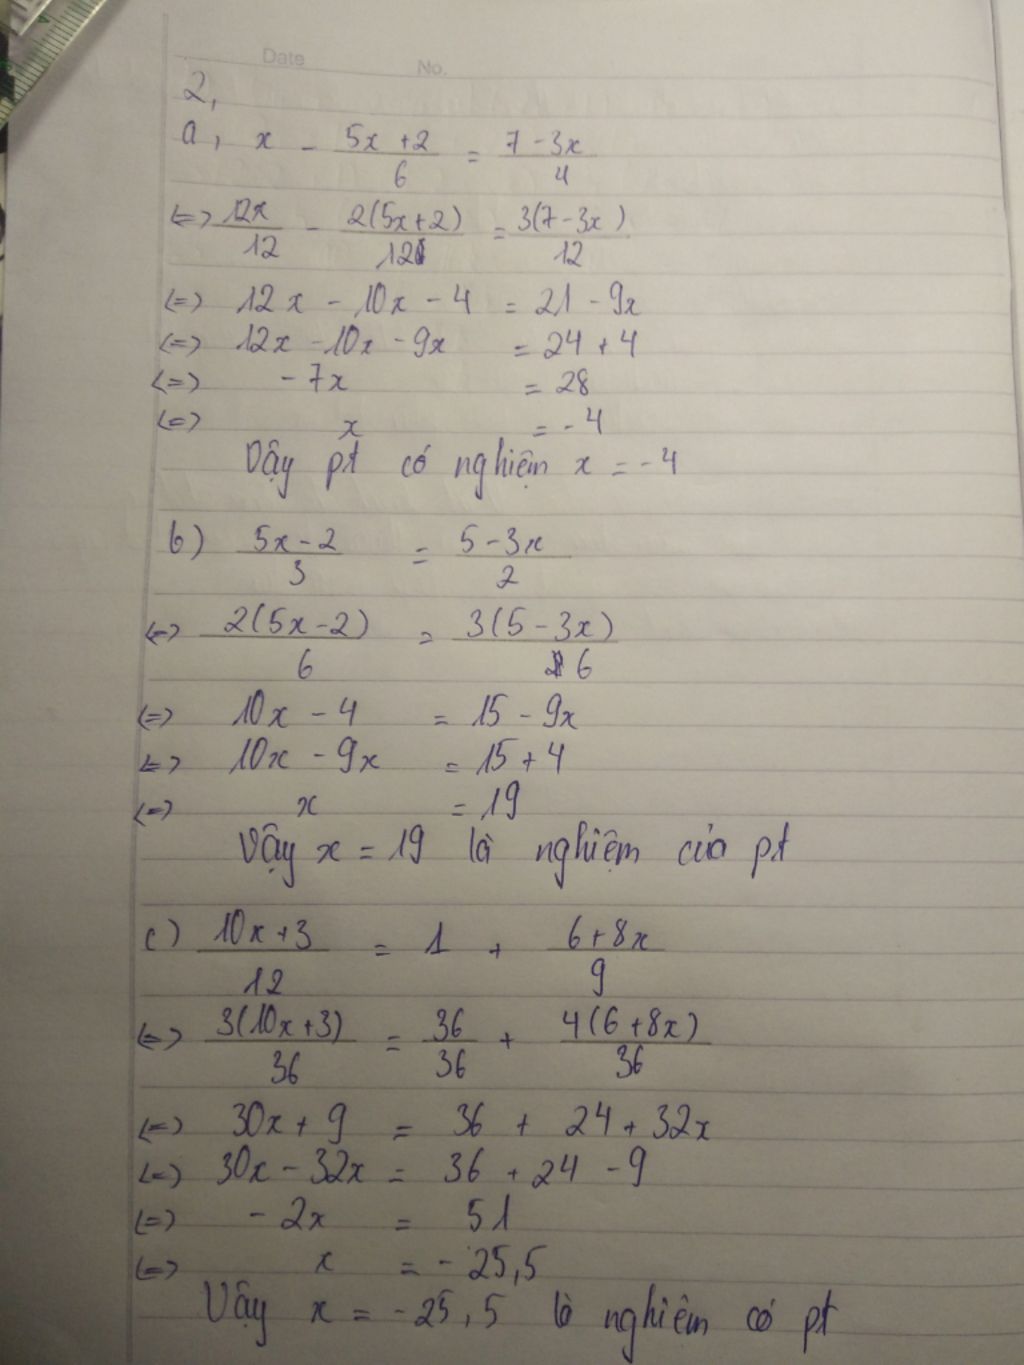 Date No.
2,
a, x - (5x + 2)/6 = (7 - 3x)/4
<=> 12x/12 - 2(5x+2)/12 = 3(7-3x)/12
<=> 12x - 10x - 4 = 21 - 9x
<=> 12x - 10x - 9x = 24 + 4
<=> - 7x = 28
<=> x = - 4
Vậy pt có nghiệm x = - 4
b) (5x - 2)/3 = (5 - 3x)/2
<=> 2(5x-2)/6 = 3(5-3x)/6
<=> 10x - 4 = 15 - 9x
<=> 10x - 9x = 15 + 4
<=> x = 19
Vậy x = 19 là nghiệm của pt
c) (10x + 3)/12 = 1 + (6 + 8x)/9
<=> 3(10x+3)/36 = 36/36 + 4(6+8x)/36
<=> 30x + 9 = 36 + 24 + 32x
<=> 30x - 32x = 36 + 24 - 9
<=> - 2x = 51
<=> x = - 25,5
Vậy x = - 25,5 là nghiệm có pt